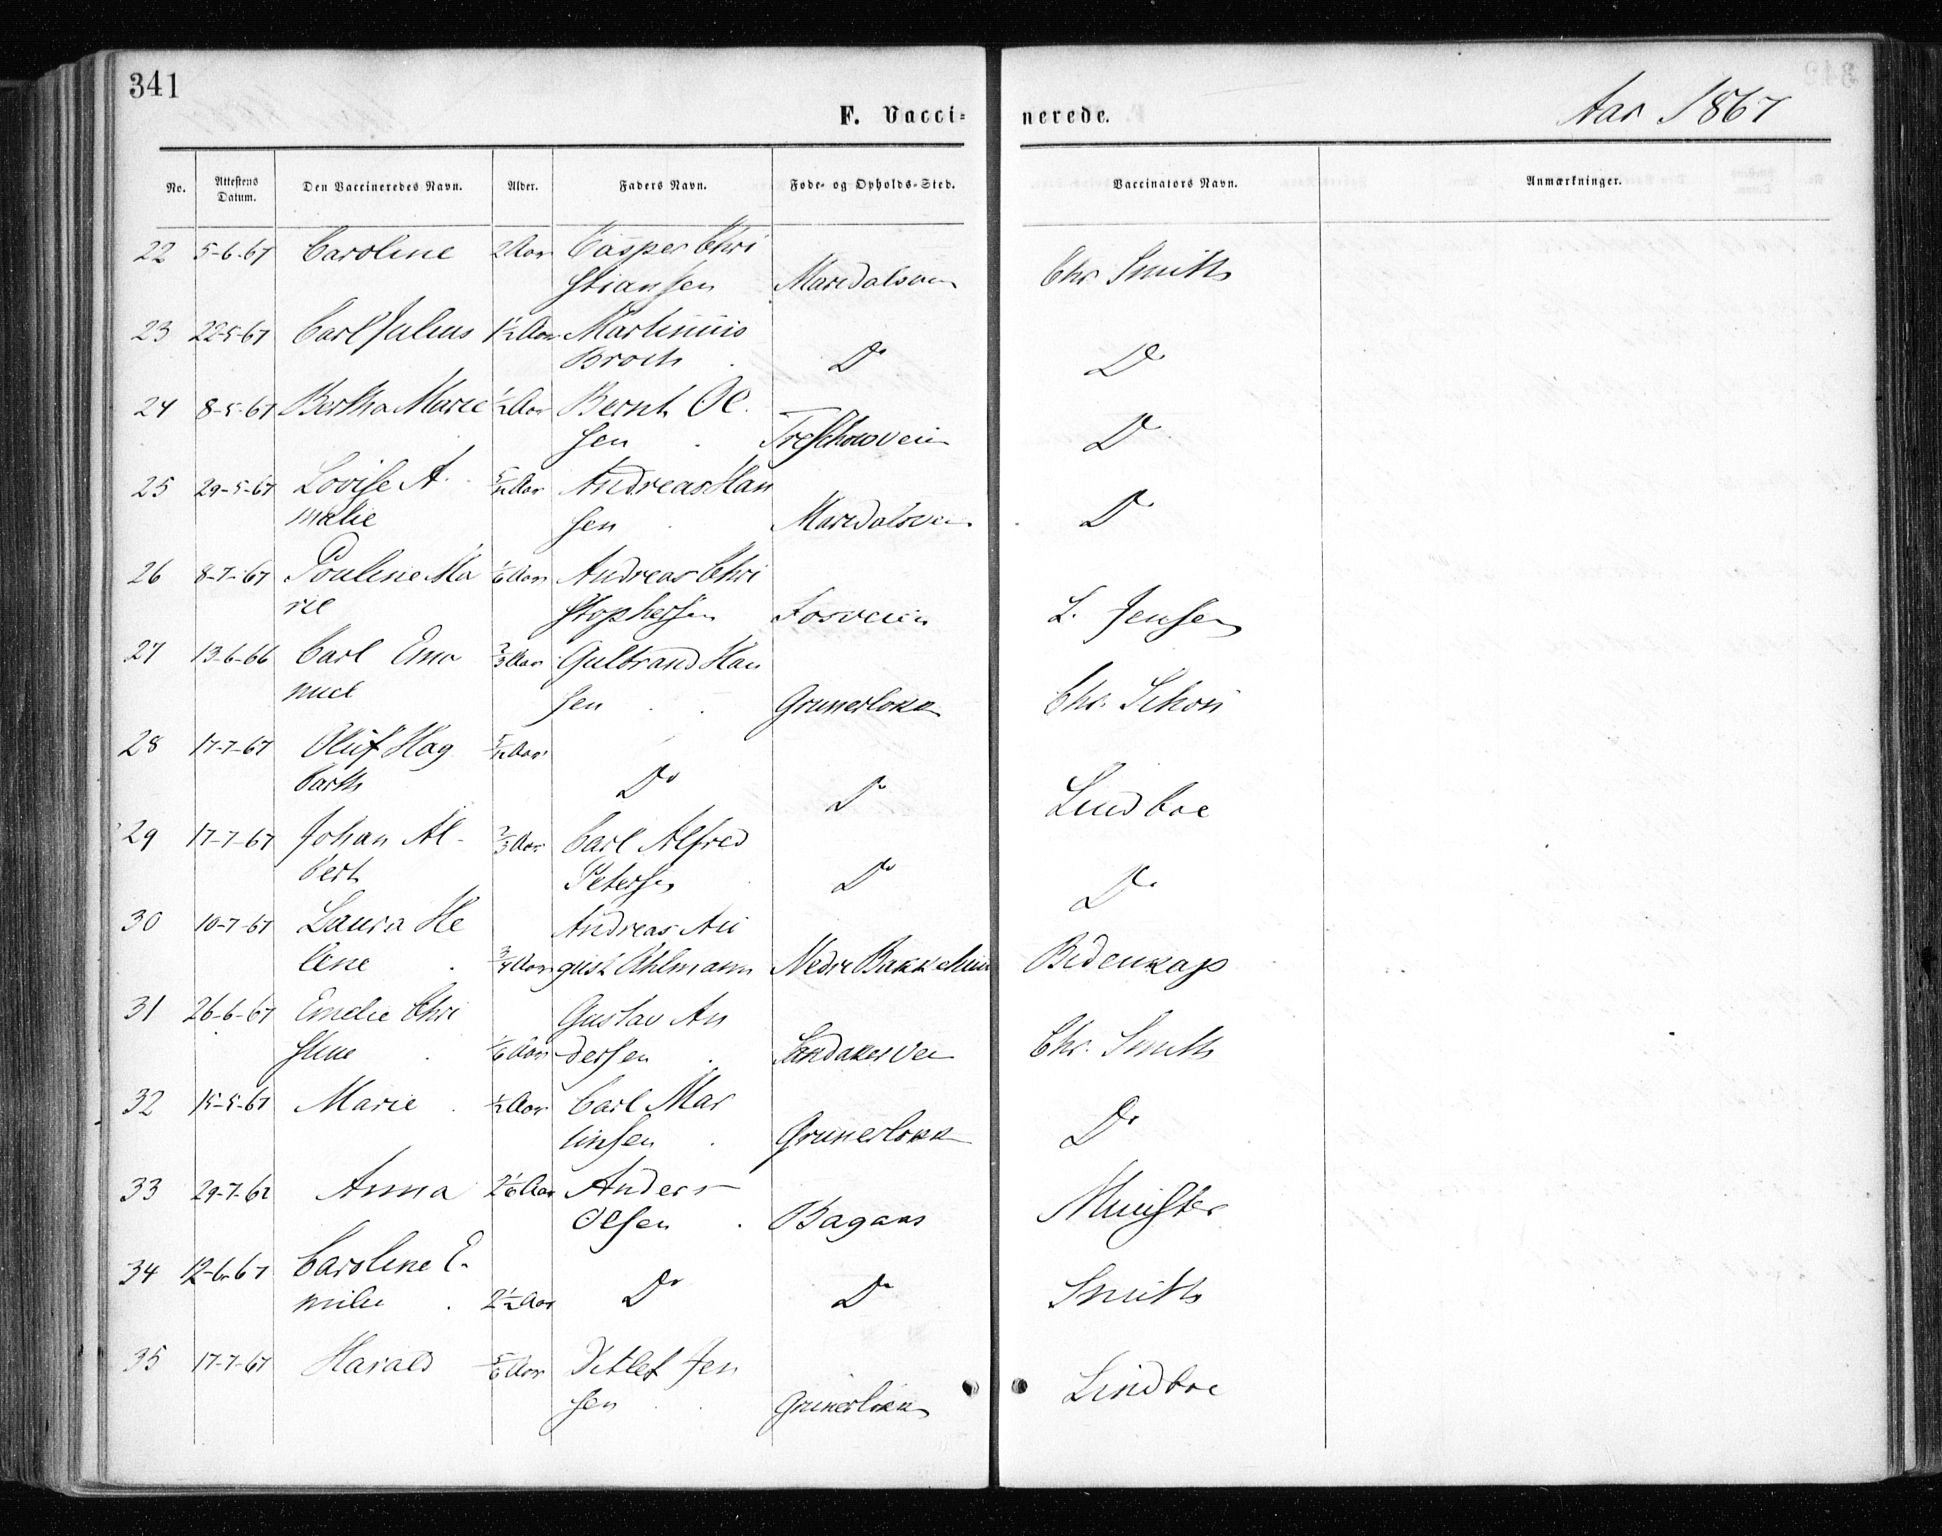 341
F. Vacci- nerede. Aar 1867
No. Attestens Datum. Den Vaccineredes Navn. Alder. Faders Navn. Føde- og Opholds-Sted. Vaccinators Navn. Anmærkninger.
22 5-6-67 Caroline 2 Aar Casper Chri
stiansen Maridalsvei Chr. Smith
23 22-5-67 Carl Julius 1½ Aar Martinius
Broch . Do Do
24 8-5-67 Bertha Marie ½ Aar Bernh Ol.
sen . Treschowveien Do
25 29-5-67 Lovise A. 5/12 Aar Andreas Han
malie sen . Maridalsvei Do
26 8-7-67 Pouline Ma 1/6 Aar Andreas Chri
rie stophersen Fosveien L. Jensen
27 13-6-66 Carl Ema 2/3 Aar Gulbrand Han
nuel sen . . Grunerløkk Chr. Schou
28 17-7-67 Oluf Hag 5/12 Aar
barth Do Do Lindboe
29 17-7-67 Johan Al- 2/3 Aar Carl Alfred
bert Petersen Do Do
30 10-7-67 Laura He Andreas Au
lene . 3/4 Aar gust Ahlmann Nedre Bakkehun Bidenkap
31 26-6-67 Emelie Chri Gustav An
stine . 1/6 Aar dersen . Sandakervei Chr. Smith
32 15-5-67 Marie . ½ Aar Carl Mar
tinsen . Grunerløkk Do
33 29-7-62 Anna 2 1/6 Aar Anders
Olsen . Bagaas Munster
34 12-6-67 Caroline E.
milie . 2½ Aar Do Do Smith
35 17-7-67 Harald 5/6 Aar Ditlef Jen
sen . . Grunerløkk Lindboe